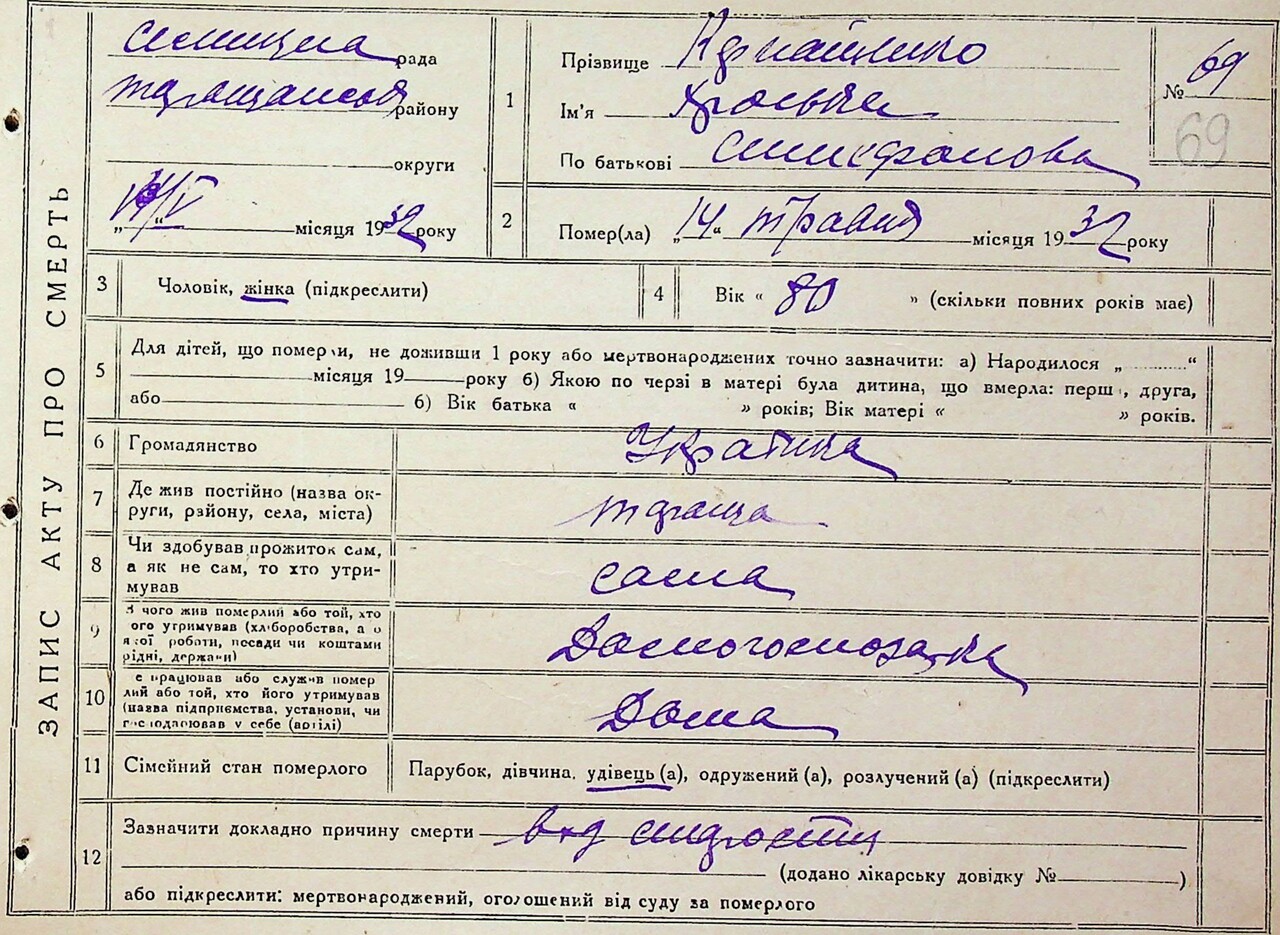 ЗАПИС АКТУ ПРО СМЕРТЬ
рада
району
округи
14/V місяця 1932 року
1
Прізвище
Ім'я
По батькові
№ 69
69
2 Помер(ла) „14“ травня місяця 1932 року
3 Чоловік, жінка (підкреслити)
4 Вік « 80 » (скільки повних років має)
5
Для дітей, що померли, не доживши 1 року або мертвонароджених точно зазначити: а) Народилося „ “
місяця 19 року б) Якою по черзі в матері була дитина, що вмерла: перш , друга,
або б) Вік батька « » років; Вік матері « » років.
6 Громадянство Українка
7 Де жив постійно (назва ок-
руги, району, села, міста)
8 Чи здобував прожиток сам,
а як не сам, то хто утри-
мував
сама
9 З чого жив померлий або той, хто
ого утримував (хліборобства, а о
якої роботи, посади чи коштами
рідні, держави)
Домогосподарка
10 е працював або служив помер
лий або той, хто його утримував
(назва підприємства, установи, чи
господарював у себе (артілі)
Дома
11 Сімейний стан померлого Парубок, дівчина, удівець (а), одружений (а), розлучений (а) (підкреслити)
12 Зазначити докладно причину смерти від старости
(додано лікарську довідку № )
або підкреслити: мертвонароджений, оголошений від суду за померлого